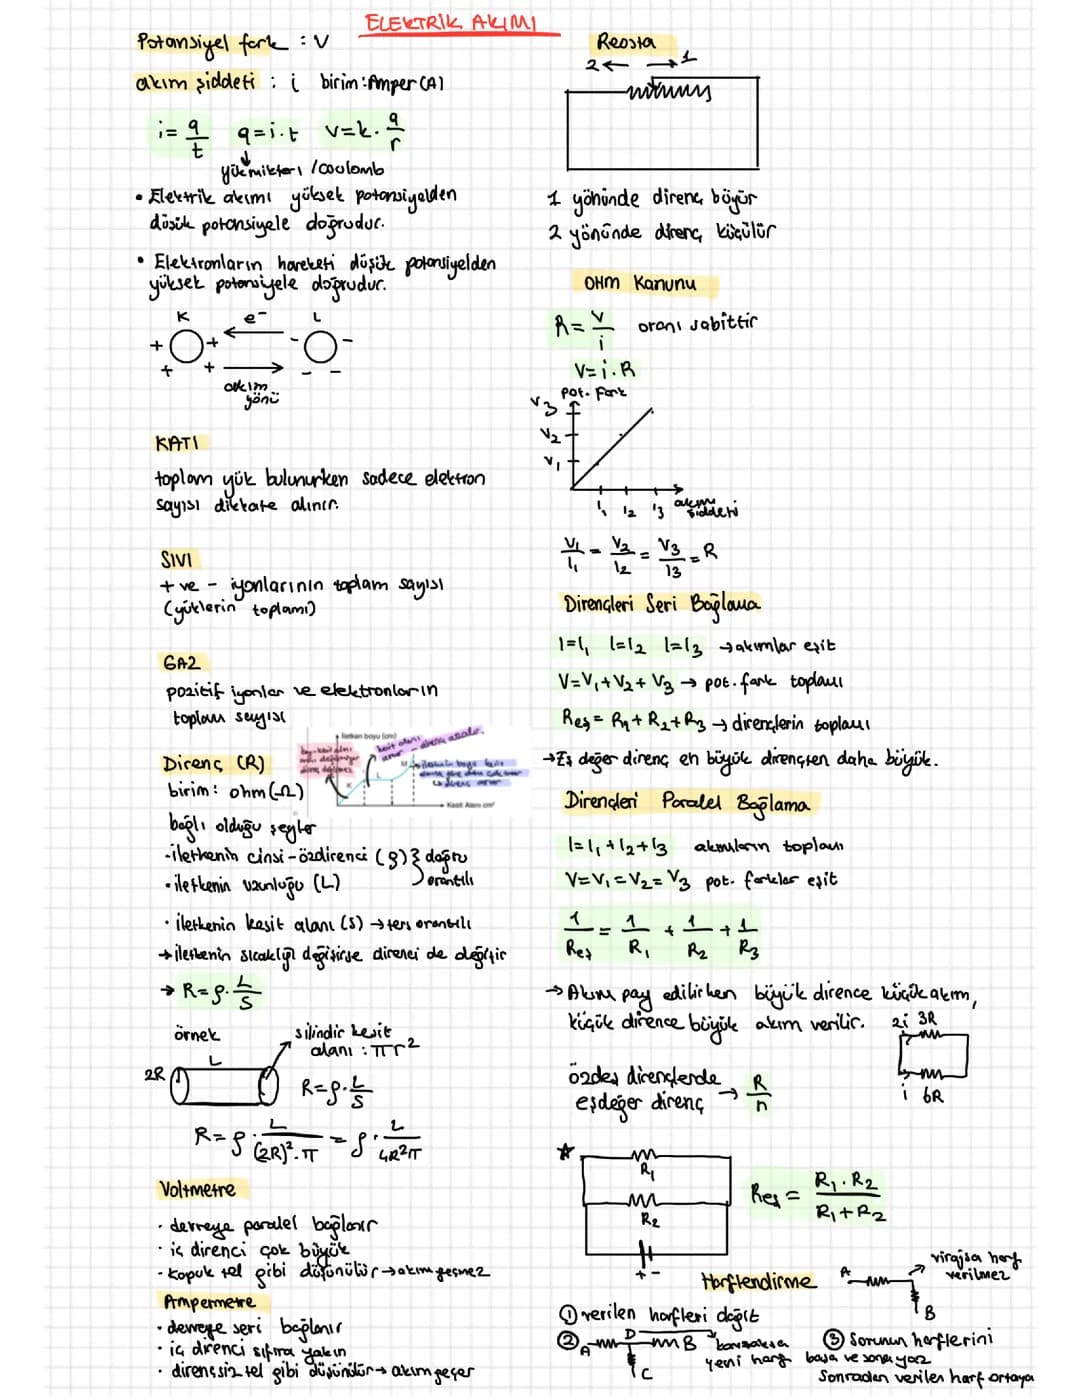 ELEKTRİK AKIMI
Potansiyel fark : V
akım şiddeti : i birim: Amper (A)
i = q/t q = i.t V = k. q/r
yük miktarı / coulomb
• Elektrik akımı yüksek potansiyelden
düşük potansiyele doğrudur.
• Elektronların hareketi düşük potansiyelden
yüksek potansiyele doğrudur.
K e- L
+ + + + - - - -
akım
yönü
KATI
toplam yük bulunurken sadece elektron
sayısı dikkate alınır.
SIVI
+ ve - iyonlarının toplam sayısı
(yüklerin toplamı)
GAZ
pozitif iyonlar ve elektronların
toplam sayısı
İletken boyu (cm)
kesit alanı
Kesit Alanı cm²
Direnç (R)
birim: ohm (Ω)
bağlı olduğu şeyler
- iletkenin cinsi - özdirenci (ρ) } doğru
• iletkenin uzunluğu (L) orantılı
• iletkenin kesit alanı (S) → ters orantılı
→ iletkenin sıcaklığı değişirse direnci de değişir
→ R = ρ. L/S
örnek
silindir kesit
alanı : πr²
L
2R
R = ρ. L/S
R = ρ. L/(2R)².π = ρ. L/4R²π
Voltmetre
• devreye paralel bağlanır
• iç direnci çok büyük
• kopuk tel gibi düşünülür → akım geçmez
Ampermetre
• devreye seri bağlanır
• iç direnci sıfıra yakın
• dirençsiz tel gibi düşünülür → akım geçer
Reosta
2 ← → 1
1 yönünde direnç büyür
2 yönünde direnç küçülür
OHM Kanunu
R = V/i oranı sabittir
V = i.R
pot. fark
V3
V2
V1
i1 i2 i3 akım
şiddeti
V1/i1 = V2/i2 = V3/i3 = R
Dirençleri Seri Bağlama
I=I1 I=I2 I=I3 → akımlar eşit
V=V1+V2+V3 → pot. fark toplamı
Reş = R1+R2+R3 → dirençlerin toplamı
→ Eş değer direnç en büyük dirençten daha büyük.
Dirençleri Paralel Bağlama
I=I1+I2+I3 akımların toplamı
V=V1=V2=V3 pot. farklar eşit
1/Reş = 1/R1 + 1/R2 + 1/R3
→ Akım pay edilirken büyük dirence küçük akım,
küçük dirence büyük akım verilir.
2i 3R
i 6R
özdeş dirençlerde
eşdeğer direnç → R/n
R1
R2
+ -
Reş = R1.R2/R1+R2
Harflendirme
A
B
virajsa harf
verilmez
① verilen harfleri dağıt
② A D B C kavşaksa
yeni harf
③ Sorunun harflerini
başa ve sona yaz
Sonradan verilen harf ortaya